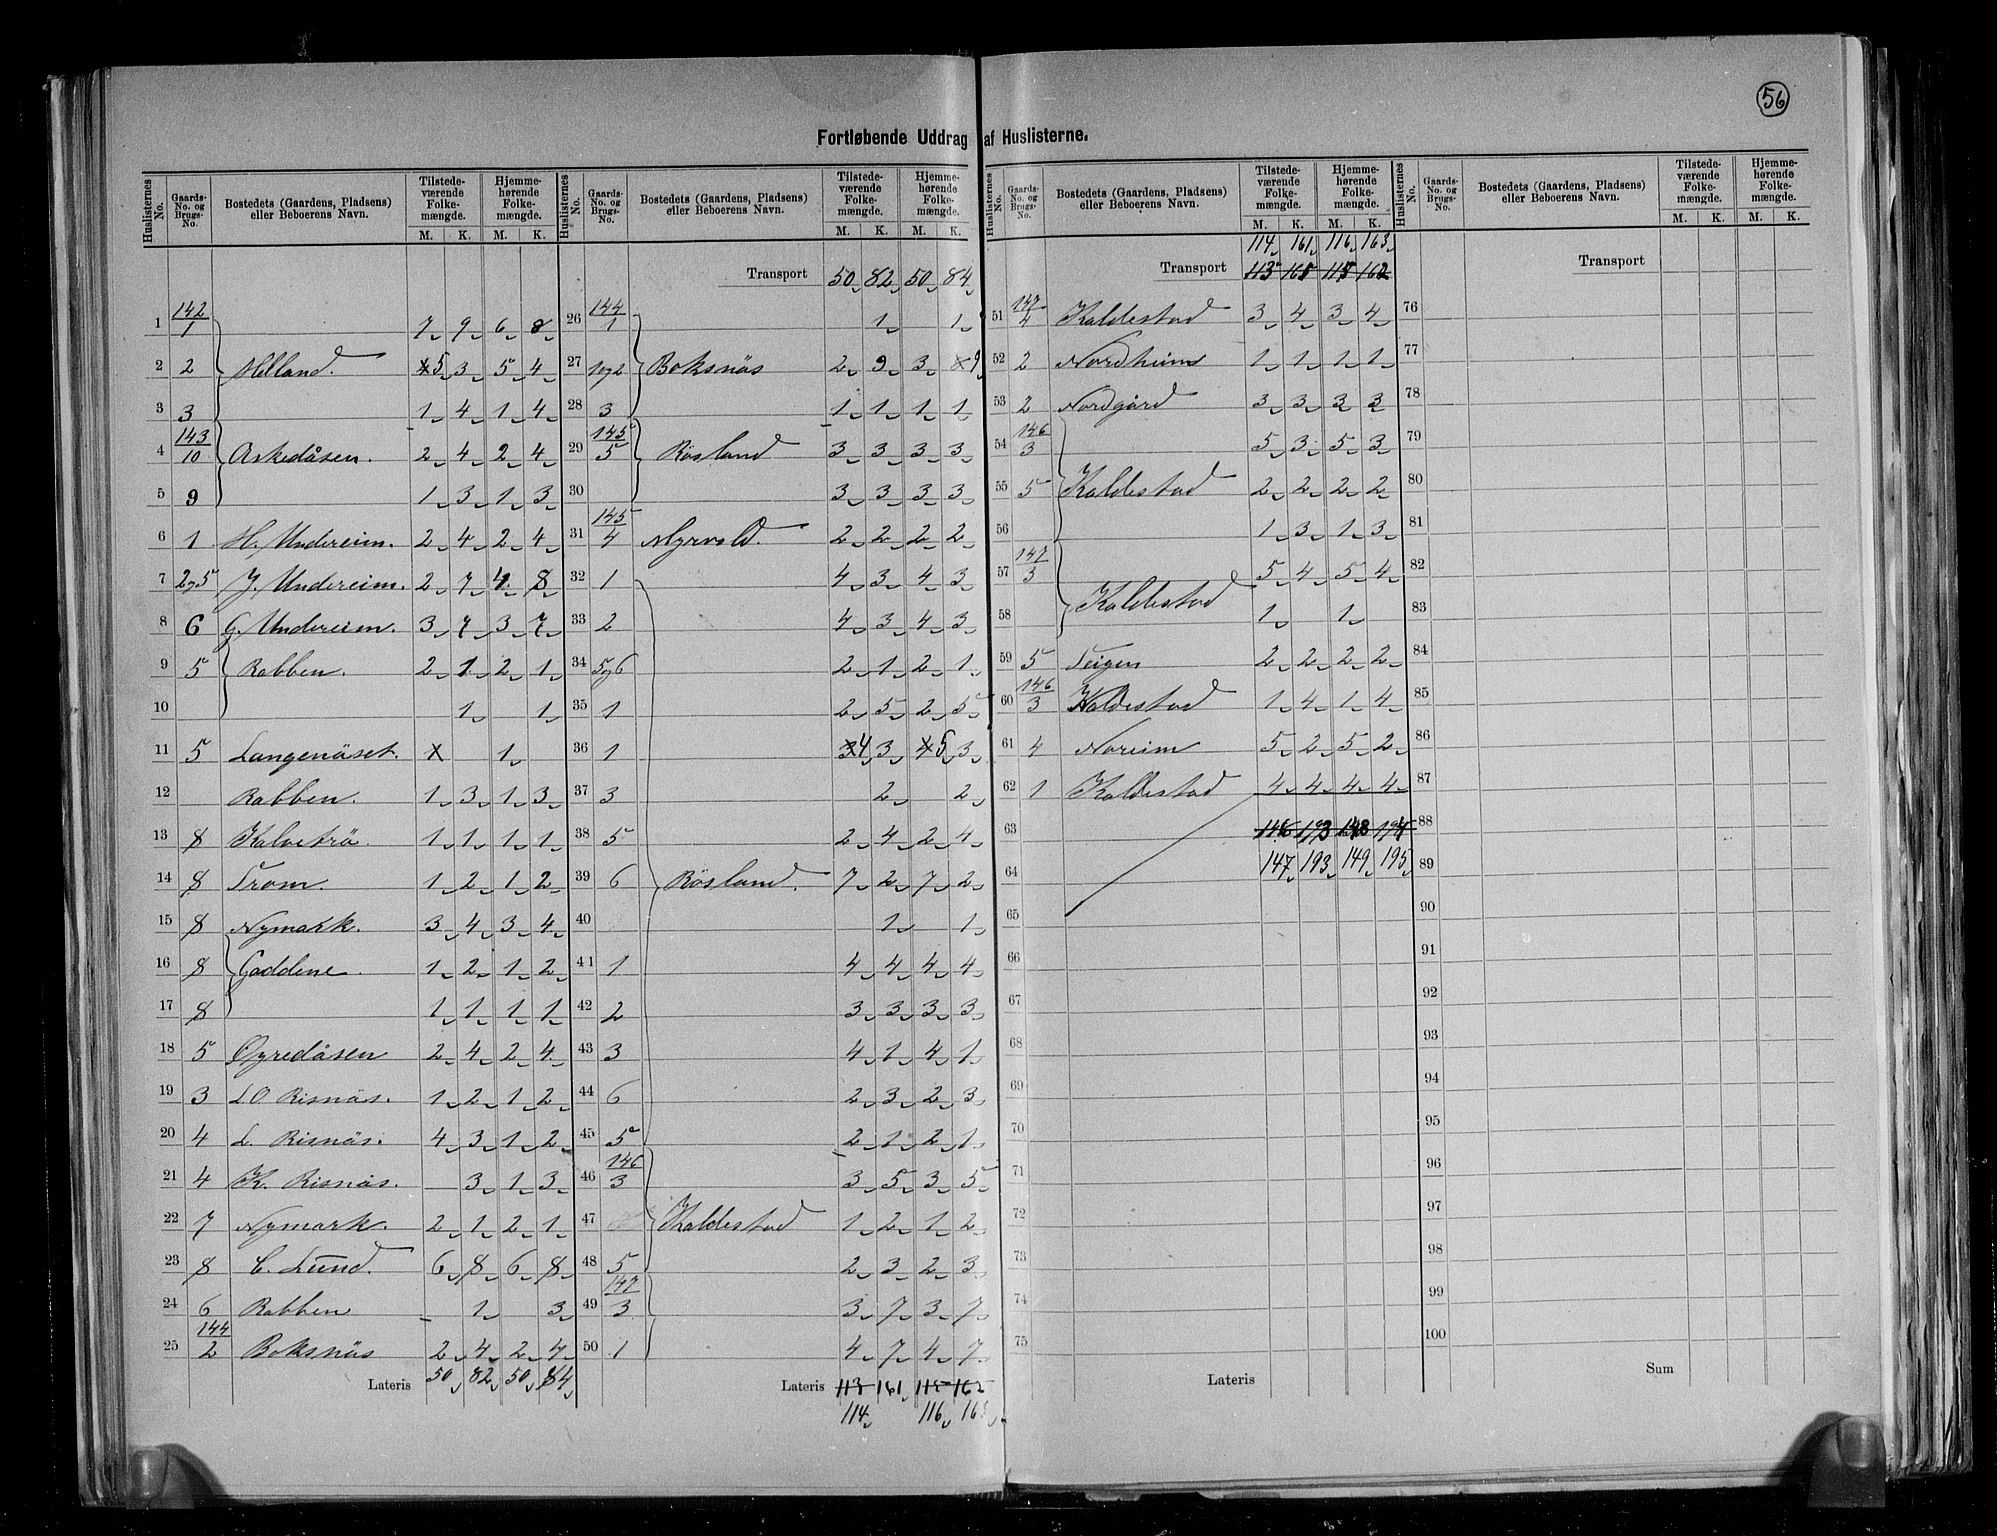 56
Fortløbende Uddrag af Huslisterne.
Huslisternes No. Gaards-No. og Brugs-No. Bostedets (Gaardens, Pladsens) eller Beboerens Navn. Tilstedeværende Folkemængde. M. K. Hjemmehørende Folkemængde. M. K.
1 142/1 7 9 6 8
2 2 Helland. 5 3 5 4
3 3 1 4 1 4
4 143/10 Askedåsen. 2 4 2 4
5 9 1 3 1 3
6 1 H. Undereim. 2 4 2 4
7 2og5 J. Undereim. 2 7 4 8
8 6 G. Undereim. 3 7 3 7
9 5 Rabben. 2 1 2 1
10 1 1
11 5 Langenäset. 1
12 Rabben. 1 3 1 3
13 8 Kalvetrö. 1 1 1 1
14 8 Trom. 1 2 1 2
15 8 Nymark. 3 4 3 4
16 8 Gaddene 1 2 1 2
17 8 1 1 1 1
18 5 Oyredåsen 2 4 2 4
19 3 L.O. Risnäs. 1 2 1 2
20 4 L. Risnäs. 4 3 1 2
21 4 K. Risnäs. 3 1 3
22 7 Nymark. 2 1 2 1
23 8 C. Lund. 6 8 6 8
24 6 Rabben 1 3
25 144/2 Boksnäs 2 4 2 4
Lateris 50 82 50 84
Huslisternes No. Gaards-No. og Brugs-No. Bostedets (Gaardens, Pladsens) eller Beboerens Navn. Tilstedeværende Folkemængde. M. K. Hjemmehørende Folkemængde. M. K.
Transport 50 82 50 84
26 144/1 1 1
27 1og2 Boksnäs 2 9 3 9
28 3 1 1 1 1
29 145/5 Rösland 3 3 3 3
30 3 3 3 3
31 145/4 Myrvold. 2 2 2 2
32 1 4 3 4 3
33 2 4 3 4 3
34 5og6 2 1 2 1
35 1 2 5 2 5
36 1 4 3 5 3
37 3 2 2
38 5 2 4 2 4
39 6 Rösland. 7 2 7 2
40 1 1
41 1 4 4 4 4
42 2 3 3 3 3
43 3 4 1 4 1
44 6 2 3 2 3
45 5 2 1 2 1
46 146/3 3 5 3 5
47 Kaldestad 1 2 1 2
48 5 2 3 2 3
49 147/3 3 7 3 7
50 1 4 7 4 7
Lateris 113 161 115 162
114 116 163
Huslisternes No. Gaards-No. og Brugs-No. Bostedets (Gaardens, Pladsens) eller Beboerens Navn. Tilstedeværende Folkemængde. M. K. Hjemmehørende Folkemængde. M. K.
114 161 116 163
Transport 113 161 115 162
51 147/4 Kaldestad 3 4 3 4
52 2 Nordheim 1 1 1 1
53 2 Nordgård 3 3 3 3
54 146/3 5 3 5 3
55 5 Kaldestad 2 2 2 2
56 1 3 1 3
57 147/3 5 4 5 4
58 Kaldestad 1 1
59 5 Teigen 2 2 2 2
60 146/3 Kaldestad 1 4 1 4
61 4 Noreim 5 2 5 2
62 1 Kaldestad 4 4 4 4
63 146 193 148 194
64 147 193 149 195
65
66
67
68
69
70
71
72
73
74
75
Lateris
Huslisternes No. Gaards-No. og Brugs-No. Bostedets (Gaardens, Pladsens) eller Beboerens Navn. Tilstedeværende Folkemængde. M. K. Hjemmehørende Folkemængde. M. K.
Transport
76
77
78
79
80
81
82
83
84
85
86
87
88
89
90
91
92
93
94
95
96
97
98
99
100
Sum